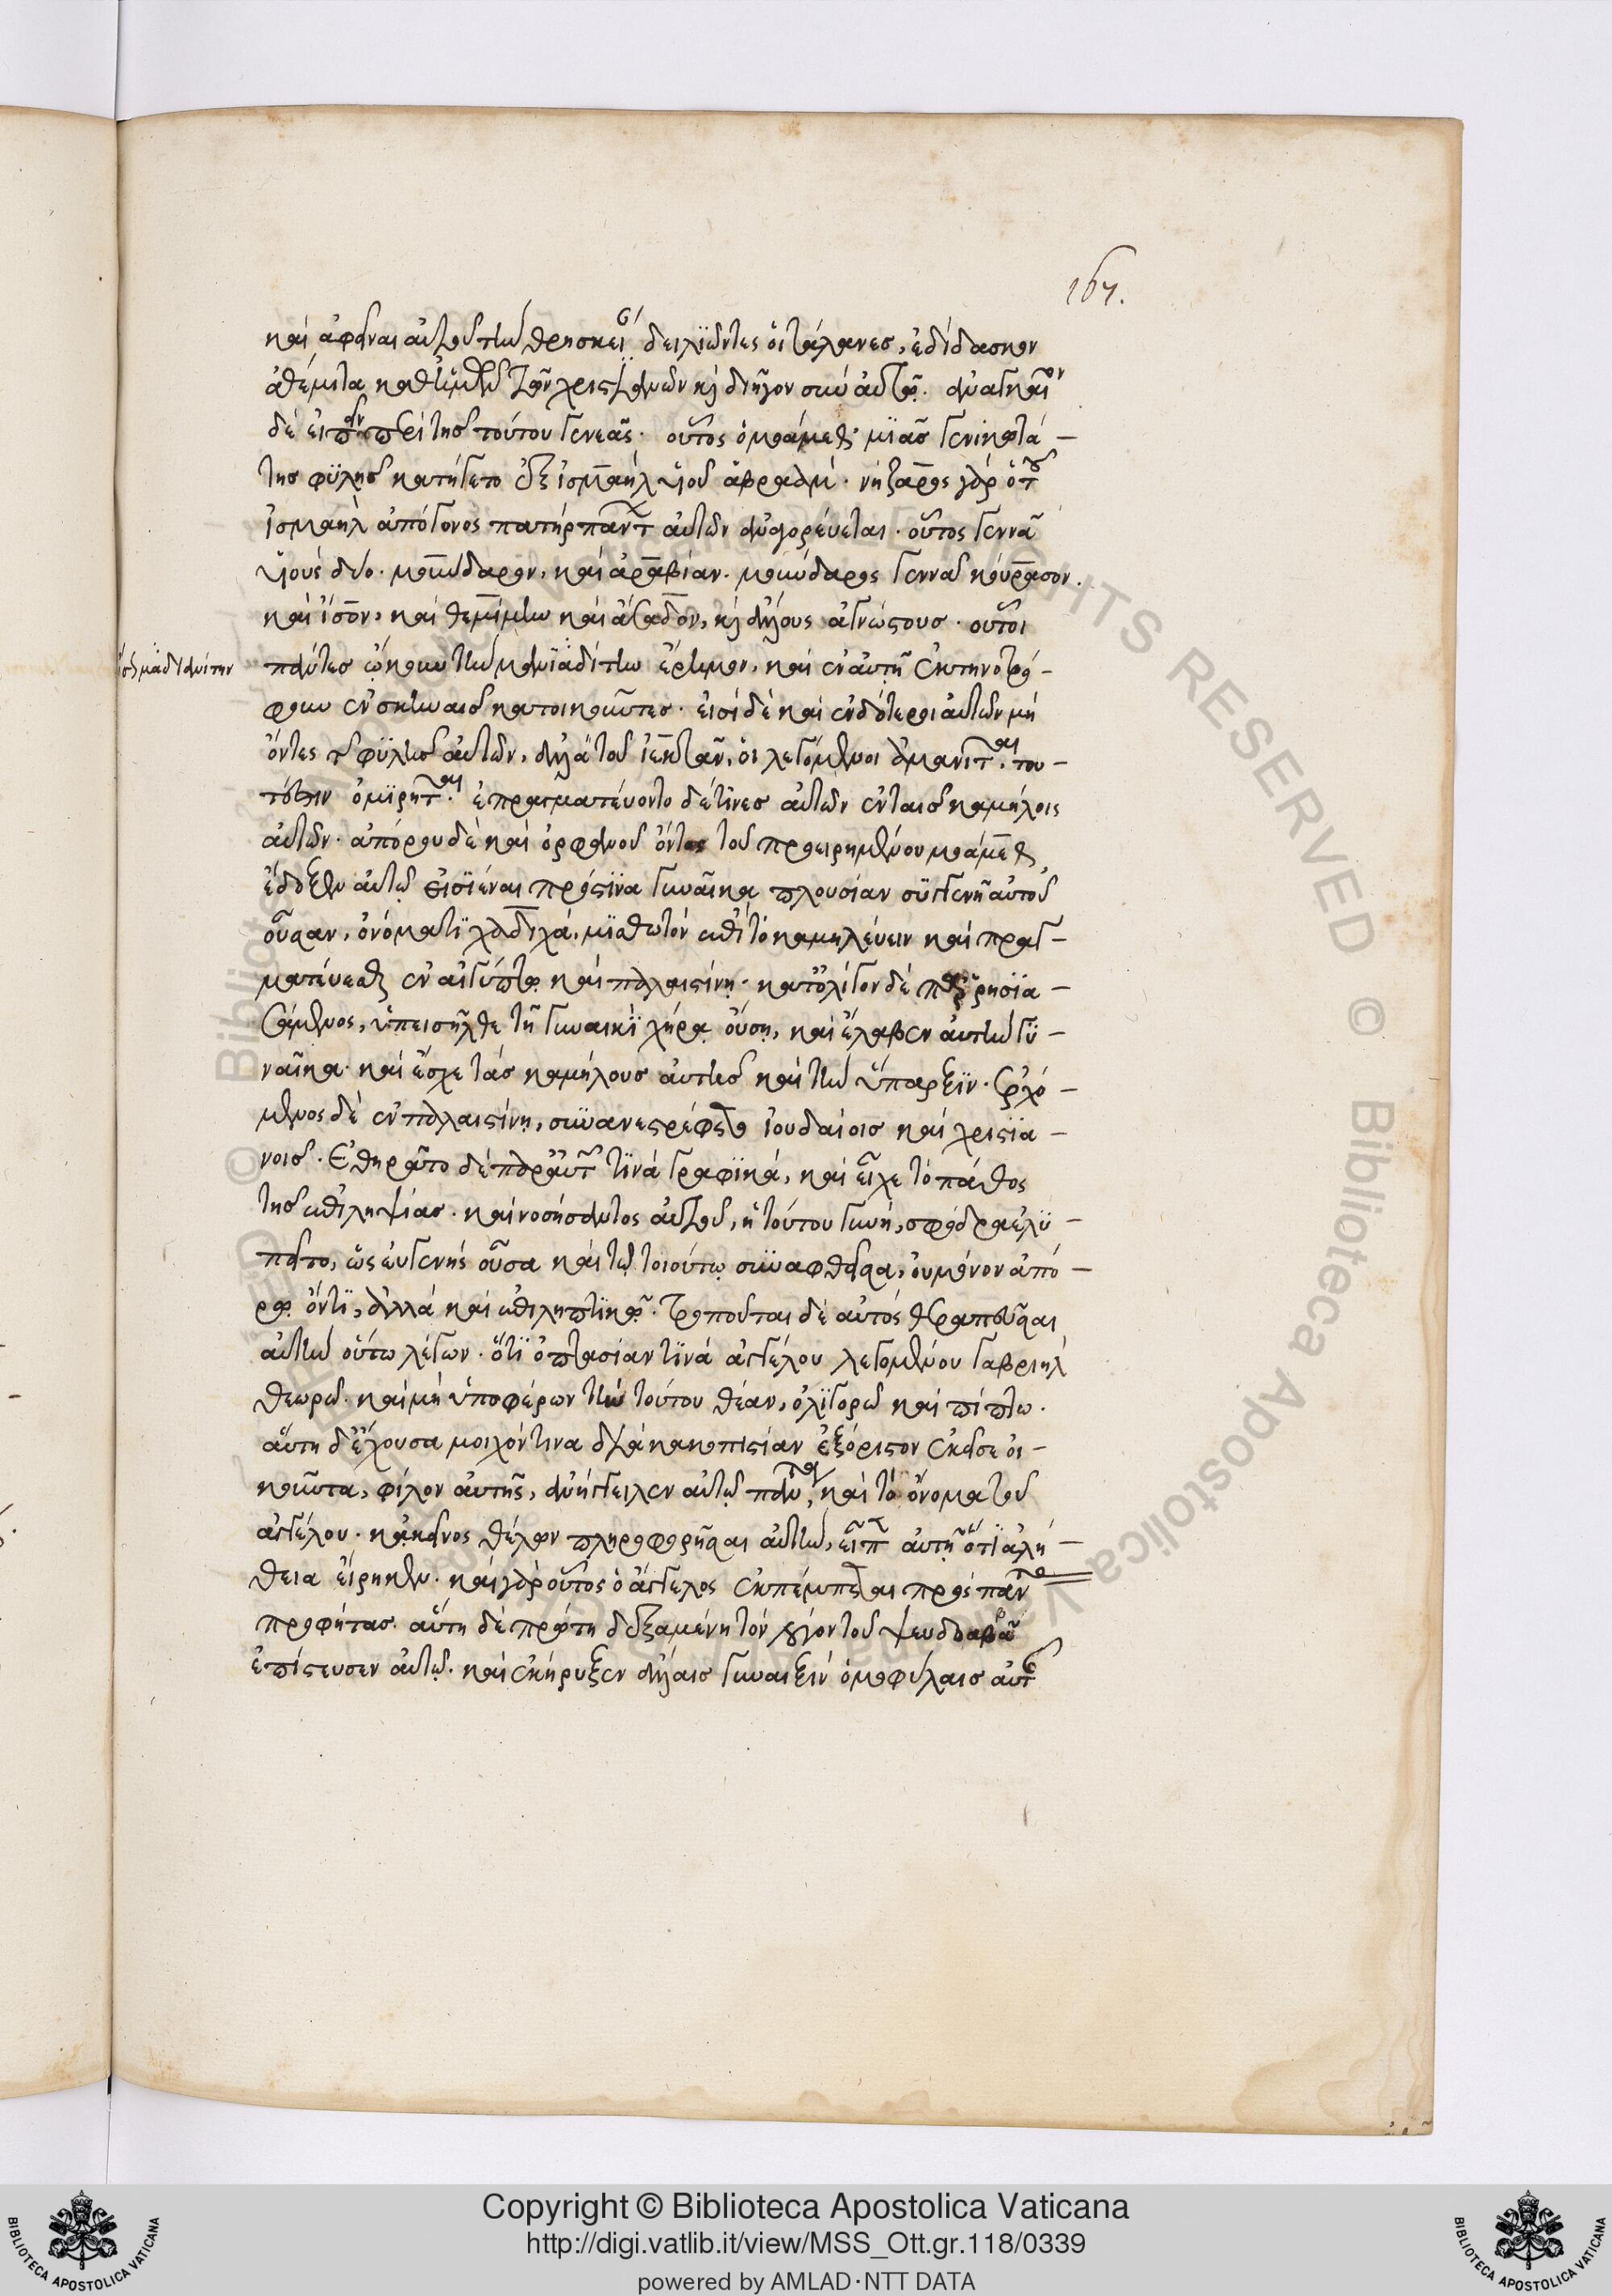 167.
καὶ ἀφεῖναι αὐτοῦ τὴν θρησκείαν δειλιῶντες οἱ τάλανες, ἐδίδασκον
ἀθέμιτα καθ' ἡμῶν τῶν χριστιανῶν καὶ διῆγον σὺν αὐτῷ. ἀναγκαῖον
δὲ εἰπεῖν περὶ τῆς τούτου γενεᾶς. οὗτος ὁ μουάμεθ μιᾶς γενικωτά-
της φυλῆς κατήγετο ἐξ ἰσμαὴλ υἱοῦ ἀβραάμ. νήζαρος γὰρ ὁ τοῦ
ἰσμαὴλ ἀπόγονος πατὴρ πάντων αὐτῶν ἀναγορεύεται. οὗτος γεννᾶ
υἱοὺς δύο. μούνδαρον, καὶ ἀραβίαν. μούνδαρος γεννᾷ κούρασον.
καὶ ἴσον, καὶ θεμίμην καὶ ἄσαδον, καὶ ἄλλους ἀγνώστους. οὗτοι
μαδιανίτην
πάντες ᾤκουν τὴν μαδιανίτην ἔρημον, καὶ ἐν αὐτῇ ἐκτηνοτρό-
φουν ἐν σκηναῖς κατοικοῦντες. εἰσὶ δὲ καὶ ἐνδότεροι αὐτῶν μὴ
ὄντες τῆς φυλῆς αὐτῶν, ἀλλὰ τοῦ ἰεκτὰν, οἱ λεγόμενοι ἀμανῖται. του-
τέστιν ὁμιρῆται. ἐπραγματεύοντο δὲ τινὲς αὐτῶν ἐν ταῖς καμήλοις
αὐτῶν. ἀπόρου δὲ καὶ ὀρφανοῦ ὄντος τοῦ προειρημένου μουάμεθ
ἔδοξεν αὐτῷ εἰσιέναι πρός τινα γυναῖκα πλουσίαν συγγενῆ αὐτοῦ
οὖσαν, ὀνόματι χαδιχά, μισθωτὸν ἐπὶ τὸ καμηλεύειν καὶ πραγ-
ματεύεσθαι ἐν αἰγύπτῳ καὶ παλαιστίνῃ. κατ' ὀλίγον δὲ παρρησια-
σάμενος, ὑπεισῆλθε τῇ γυναικὶ χήρᾳ οὔσῃ, καὶ ἔλαβεν αὐτὴν γυ-
ναῖκα. καὶ ἔσχε τὰς καμήλους αὐτῆς καὶ τὴν ὕπαρξιν. ἐρχό-
μενος δὲ ἐν παλαιστίνῃ, συνανεστρέφετο ἰουδαίοις καὶ χριστια-
νοῖς. ἐθηρᾶτο δὲ παρ' αὐτῶν τινὰ γραφικά, καὶ εἶχε τὸ πάθος
τῆς ἐπιληψίας. καὶ νοήσαντος αὐτοῦ, ἡ τούτου γυνὴ, σφόδρα ἐλυ-
πεῖτο, ὡς εὐγενὴς οὖσα καὶ τῷ τοιούτῳ συναφθεῖσα, οὐ μόνον ἀπό-
ρῳ ὄντι, ἀλλὰ καὶ ἐπιληπτικῷ. τροποῦται δὲ αὐτὸς θεραπεῦσαι
αὐτὴν οὕτω λέγων. ὅτι ὀπτασίαν τινὰ ἀγγέλου λεγομένου γαβριὴλ
θεωρῶ. καὶ μὴ ὑποφέρων τὴν τούτου θέαν, ὀλιγορῶ καὶ πίπτω.
αὕτη δ' ἔχουσα μοιχόν τινα διὰ κακοπιστίαν ἐξόριστον ἐκεῖσε οἰ-
κοῦντα, φίλον αὐτῆς, ἀνήγγειλεν αὐτῷ πάντα, καὶ τὸ ὄνομα τοῦ
ἀγγέλου. κἀκεῖνος θέλων πληροφορῆσαι αὐτὴν, εἶπεν αὐτῇ ὅτι ἀλή-
θεια εἴρηκεν. καὶ γὰρ οὗτος ὁ ἄγγελος ἐκπέμπεται πρὸς πάντας
προφήτας. αὕτη δὲ πρώτη δεξαμένη τὸν λόγον τοῦ ψευδαββᾶ
ἐπίστευσεν αὐτῷ. καὶ ἐκήρυξεν ἄλλαις γυναιξὶν ὁμοφύλαις αὐτῆς
Copyright © Biblioteca Apostolica Vaticana
http://digi.vatlib.it/view/MSS_Ott.gr.118/0339
powered by AMLAD·NTT DATA